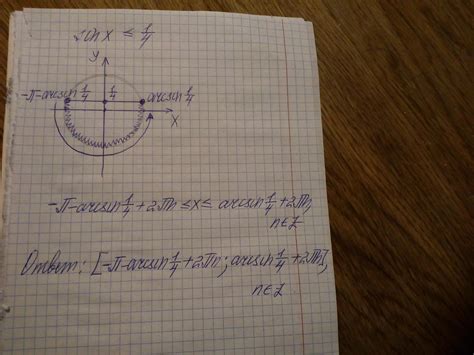 sin x ≤ 1/4
y
-π-arcsin 1/4
1/4
arcsin 1/4
x
-π-arcsin 1/4+2πn ≤x≤ arcsin 1/4+2πn,
n∈Z
Ответ: [-π-arcsin 1/4+2πn; arcsin 1/4+2πn],
n∈Z